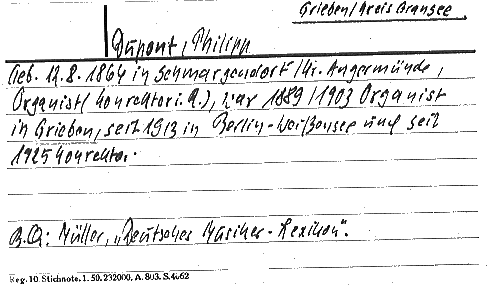 Grieben/Kreis Gransee.
Dupont, Philipp
Geb. 12.8. 1864 in Schmargendorf/Kr. Angermünde,
Organist (Konrektor i.R.), war 1889/1903 Organist
in Grieben, seit 1913 in Berlin-Weißensee und seit
1925 Konrektor.
B.Q: Müller, „Deutsches Musiker-Lexikon".
Reg. 10. Stichnote. 1. 50. 232000. A. 803. S. 4062